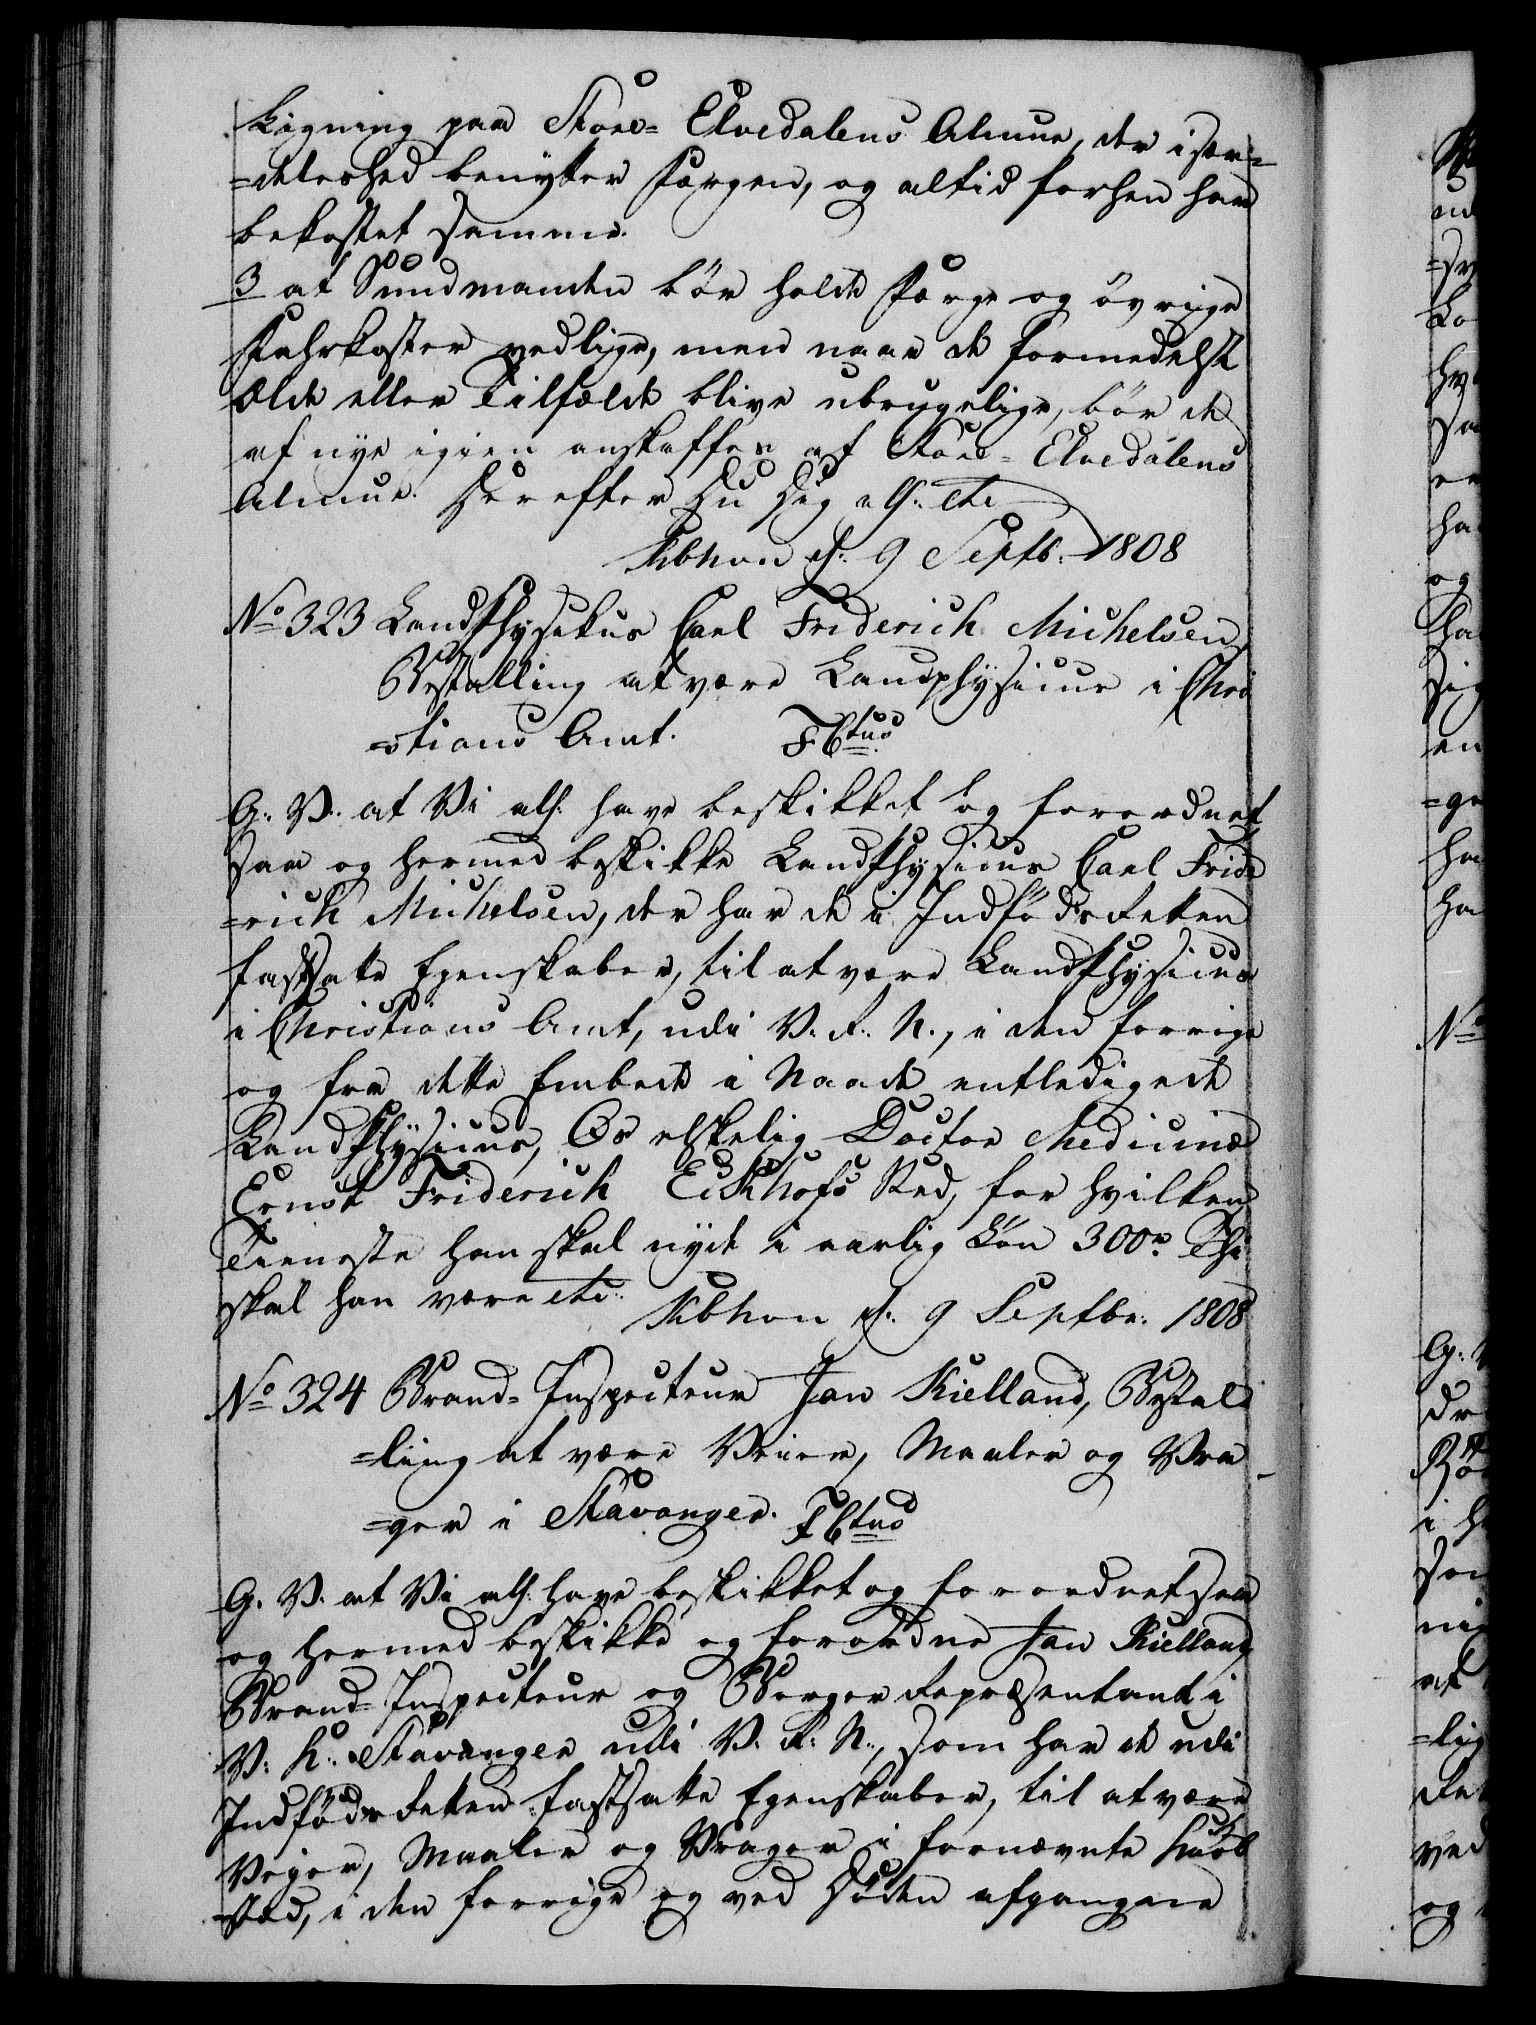 Ligning paa Store= Elvedalens Almue, der i sær=
=deleshed benytter Færgen, og altid forhen har
bekostet samme.
3 at Sundmanden bör holde Færge og övrige
Fahrkoster vedlige, men naar de formedelst
Ælde eller Tilfælde blive ubrugelige, bör de
af nye igien anskaffes af Store= Elvedalens
Almue. Derefter Du Dig alls: etc
Kbhvn d: 9 Septb: 1808
No 323 Landphysikus Carl Friderich Michelsen
Bestalling at være Landphysicus i Chri
=stians Amt. FCtus
G. V. at Vi alls. have beskikket og forordnet
saa og hermed beskikke Landphysicus Carl Fride
=rich Michelsen, der har de i Indföds Retten
fastsatte Egenskaber, til at være Landphysicus
i Christians Amt, udi V. R. N., i den forrige
og fra dette Embede i Naade entledigede
Landphysicus, Os elskelig Doctor Medicinæ
Ernst Friderich Eckhofs Sted, for hvilken
Tieneste han skal nyde i aarlig Lön 300 r. Thi
skal han være etc. Kbhvn d: 9 Septbr: 1808
No 324 Brand= Inspecteur Jan Kielland, Bestal
=ling at være Veier, Maaler og Vra
=ger i Stavanger. FCtus
G. V. at Vi alls. have beskikket og forordnet saa
og hermed beskikke og forordne Jan Kielland
Brand= Inspecteur og Borger Repræsentant i
V. K. Stavanger udi V. R. N., som har de udi
Indföds Retten fastsatte Egenskaber, til at være
Veier, Maaler og Vrager i fornævnte Kiöb
=stad, i den forrige og ved Döden afgangne